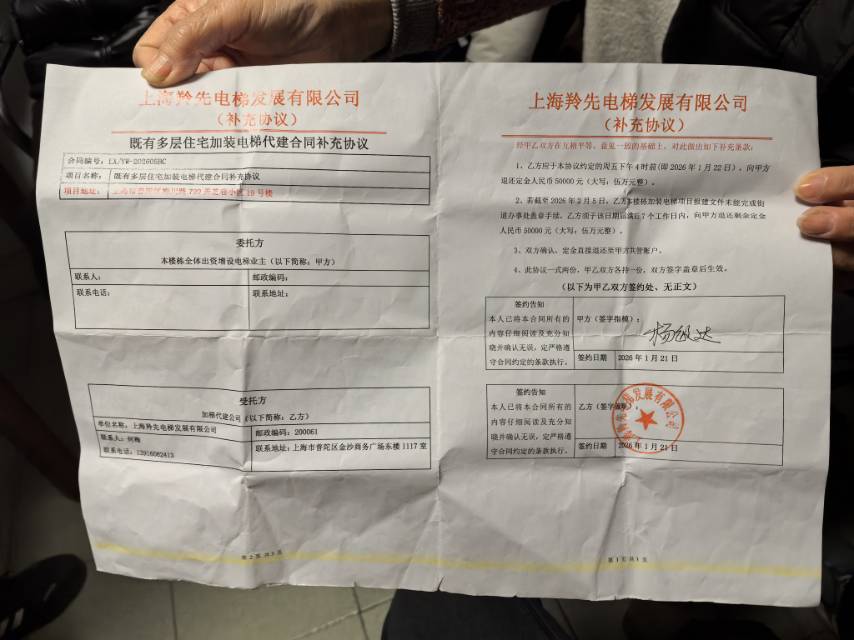 上海羚先电梯发展有限公司
（补充协议）
既有多层住宅加装电梯代建合同补充协议
合同编号：LX/YW-202605BC
项目名称：既有多层住宅加装电梯代建合同补充协议
项目地址：
委托方
本楼栋全体出资增设电梯业主（以下简称：甲方）
联系人：
邮政编码：
联系电话：
联系地址：
受托方
加梯代建公司（以下简称：乙方）
单位名称：上海羚先电梯发展有限公司
联系人：何梅
邮政编码：200061
联系电话：13916082413
联系地址：上海市普陀区金沙商务广场东楼 1117 室
第 2 页 共 3 页
上海羚先电梯发展有限公司
（补充协议）
经甲乙双方在互相平等、意见一致的基础上，对此做出如下补充条款：
1、乙方应于本协议约定的周五下午 4 时前（即 2026 年 1 月 22 日），向甲方
退还定金人民币 50000 元（大写：伍万元整）。
2、若截至 2026 年 2 月 5 日，乙方本楼栋加装电梯项目报建文件未能完成街
道办事处盖章手续，乙方须于该日期届满后 7 个工作日内，向甲方退还剩余定金
人民币 50000 元（大写：伍万元整）。
3、双方确认，定金直接退还至甲方共管账户。
4、此协议一式两份，甲乙双方各持一份，双方签字盖章后生效。
（以下为甲乙双方签约处、无正文）
签约告知
本人已将本合同所有的
内容仔细阅读及充分知
晓并确认无误，定严格遵
守合同约定的条款执行。
甲方（签字指模）：
签约日期
2026 年 1 月 21 日
签约告知
本人已将本合同所有的
内容仔细阅读及充分知
晓并确认无误，定严格遵
守合同约定的条款执行。
乙方（签字盖章）：
签约日期
2026 年 1 月 21 日